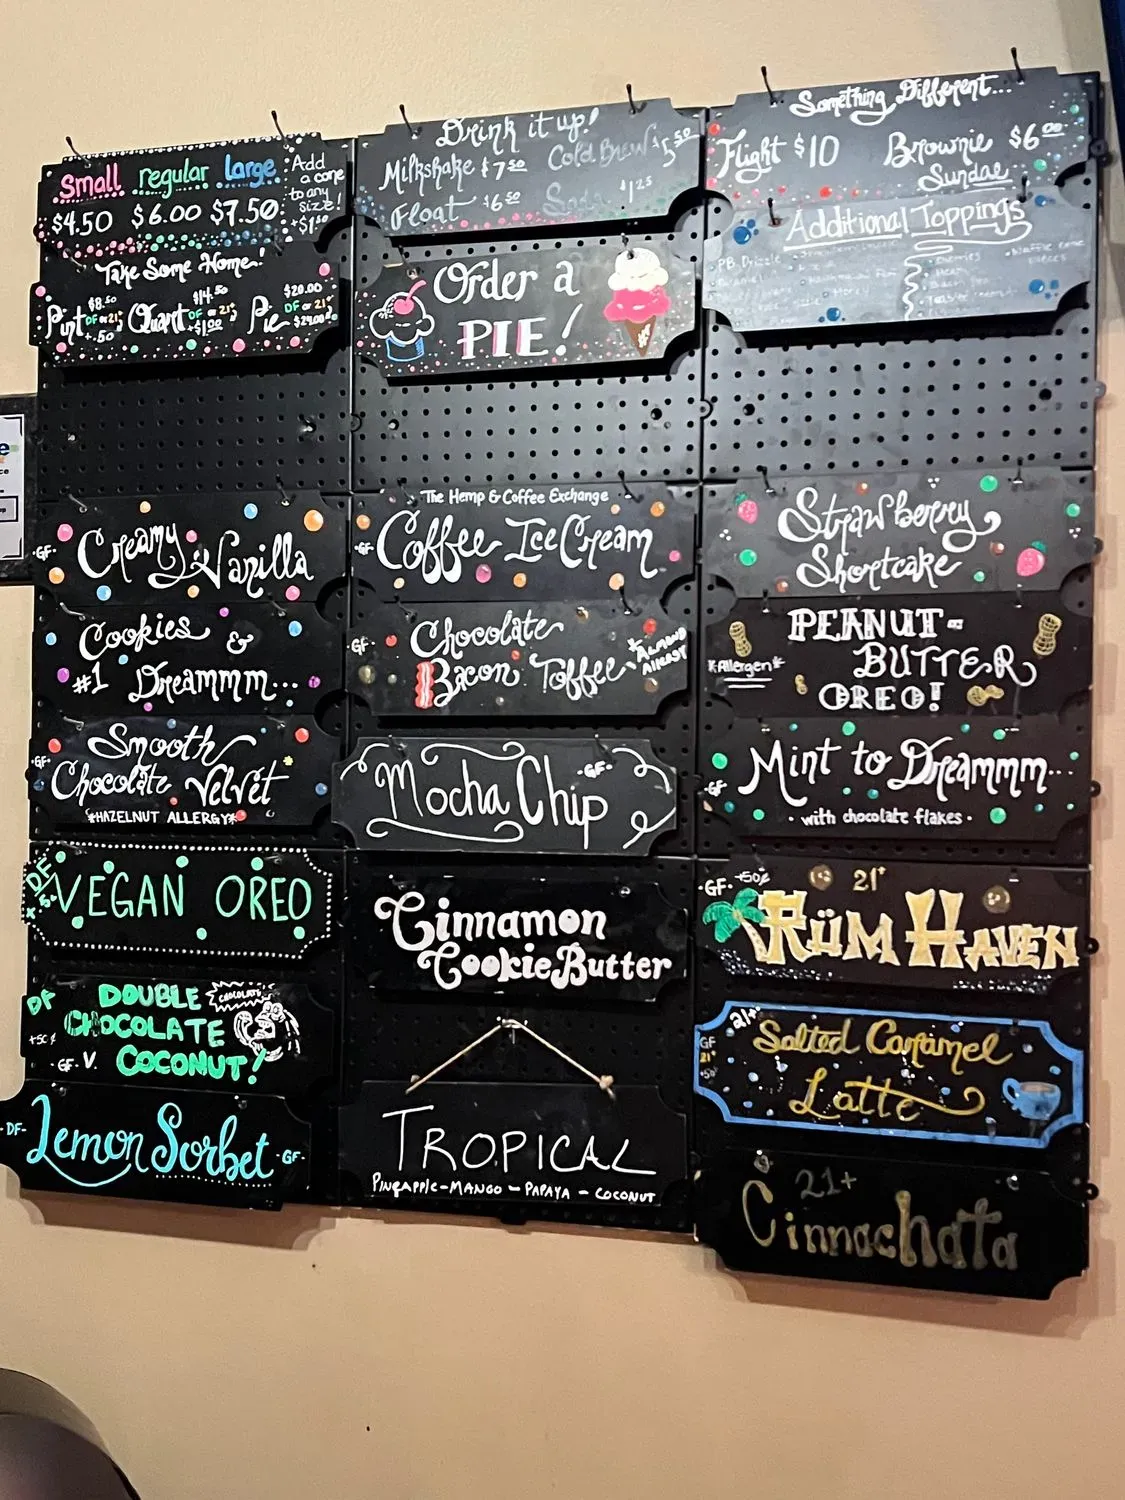 Small regular large
$4.50 $6.00 $7.50
Add
a cone
to any
size!
+$1.50
Take Some Home!
Pint $8.50 DF or 21+ +.50
Quart $14.50 DF or 21+ +$1.00
Pie $20.00 DF or 21+ $24.00
Drink it up!
Milkshake $7.50 Cold Brew $5.50
Float $6.50 Soda $1.25
Order a
PIE!
Something Different...
Flight $10 Brownie $6.00
Sundae
Additional Toppings
PB Drizzle
-GF- Creamy Vanilla
Cookies &
#1 Dreammm...
Smooth
-GF- Chocolate Velvet
*HAZELNUT ALLERGY*
DF VEGAN OREO
DF DOUBLE CHOCOLATE
CHOCOLATE
+50¢ -GF- V. COCONUT!
-DF- Lemon Sorbet -GF-
The Hemp & Coffee Exchange
-GF- Coffee Ice Cream
-GF- Chocolate
Bacon Toffee *ALMOND ALLERGY
Mocha Chip -GF-
Cinnamon
Cookie Butter
TROPICAL
PINEAPPLE-MANGO-PAPAYA-COCONUT
Strawberry
Shortcake
PEANUT-
*Allergen* BUTTER
OREO!
-GF- Mint to Dreammm...
· with chocolate flakes ·
-GF- +50¢ 21+
RÜM HAVEN
21+ Salted Caramel
GF 21+ +50¢ Latte
21+
Cinnachata